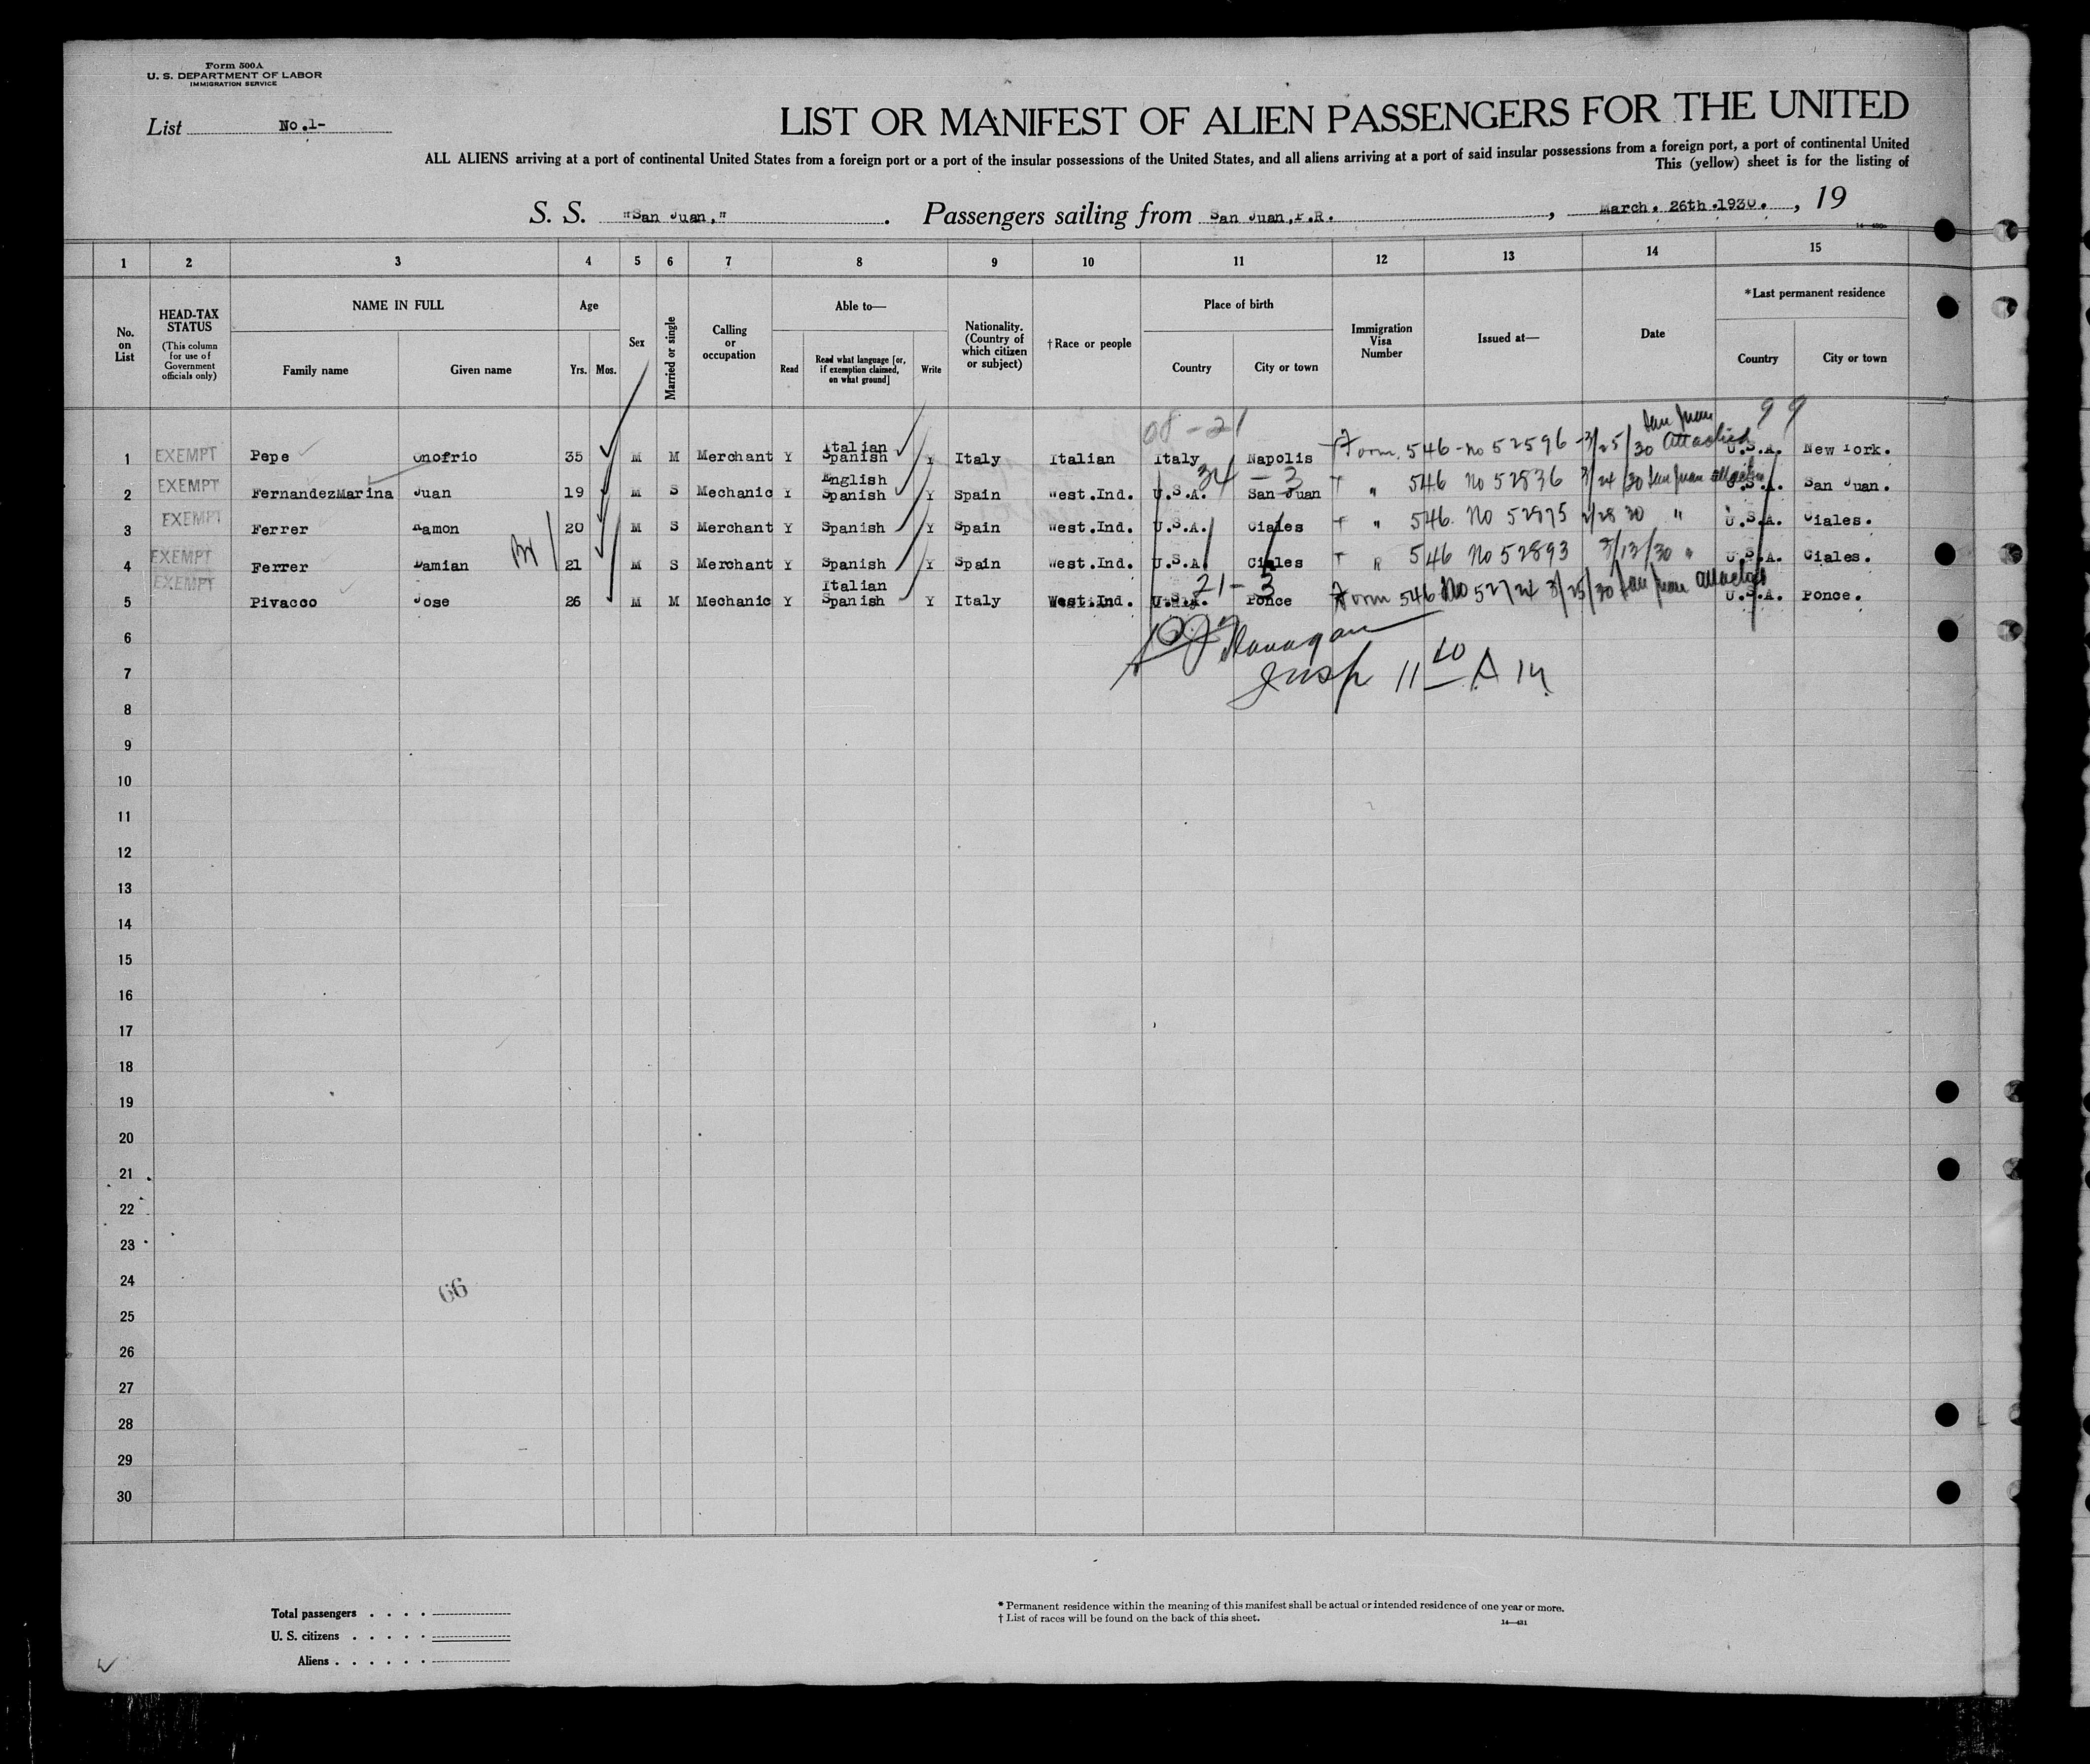 Form 500A
U. S. DEPARTMENT OF LABOR
IMMIGRATION SERVICE
List No.1-
LIST OR MANIFEST OF ALIEN PASSENGERS FOR THE UNITED
ALL ALIENS arriving at a port of continental United States from a foreign port or a port of the insular possessions of the United States, and all aliens arriving at a port of said insular possessions from a foreign port, a port of continental United
This (yellow) sheet is for the listing of
S. S. "San Juan," . Passengers sailing from San Juan,P.R. , March. 26th.1930. , 19
14-430a
1 2 3 4 5 6 7 8 9 10 11 12 13 14 15
No. on List
HEAD-TAX STATUS
(This column for use of Government officials only)
NAME IN FULL
Family name Given name
Age
Yrs. Mos.
Sex
Married or single
Calling or occupation
Able to—
Read
Read what language [or, if exemption claimed, on what ground]
Write
Nationality. (Country of which citizen or subject)
†Race or people
Place of birth
Country City or town
Immigration Visa Number
Issued at—
Date
*Last permanent residence
Country City or town
08-21 San Juan 99
1 EXEMPT Pepe Onofrio 35 M M Merchant Y Italian Spanish Y Italy Italian Italy Napolis Form 546-no 52596-3/25/30 attached U.S.A. New York.
34 - 3
2 EXEMPT FernandezMarina Juan 19 M S Mechanic Y English Spanish Y Spain West.Ind. U.S.A. San Juan " 546 no 52836 3/24/30 San Juan attached U.S.A. San Juan.
3 EXEMPT Ferrer Ramon 20 M S Merchant Y Spanish Y Spain West.Ind. U.S.A. Ciales " 546. No 52875 2/28 30 " U.S.A. Ciales.
4 EXEMPT Ferrer Damian 21 M S Merchant Y Spanish Y Spain West.Ind. U.S.A. Ciales 546 No 52893 3/13/30 " U.S.A. Ciales.
21-3
5 EXEMPT Pivacco Jose 26 M M Mechanic Y Italian Spanish Y Italy West.Ind. U.S.A. Ponce Form 546 No 52724 3/25/30 San Juan attached U.S.A. Ponce.
6
Flanagan
7
Insp
8
9
10
11
12
13
14
15
16
17
18
19
20
21
22
23
24
66
25
26
27
28
29
30
Total passengers . . . .
U. S. citizens . . . . .
Aliens . . . . . .
* Permanent residence within the meaning of this manifest shall be actual or intended residence of one year or more.
† List of races will be found on the back of this sheet.
14-431